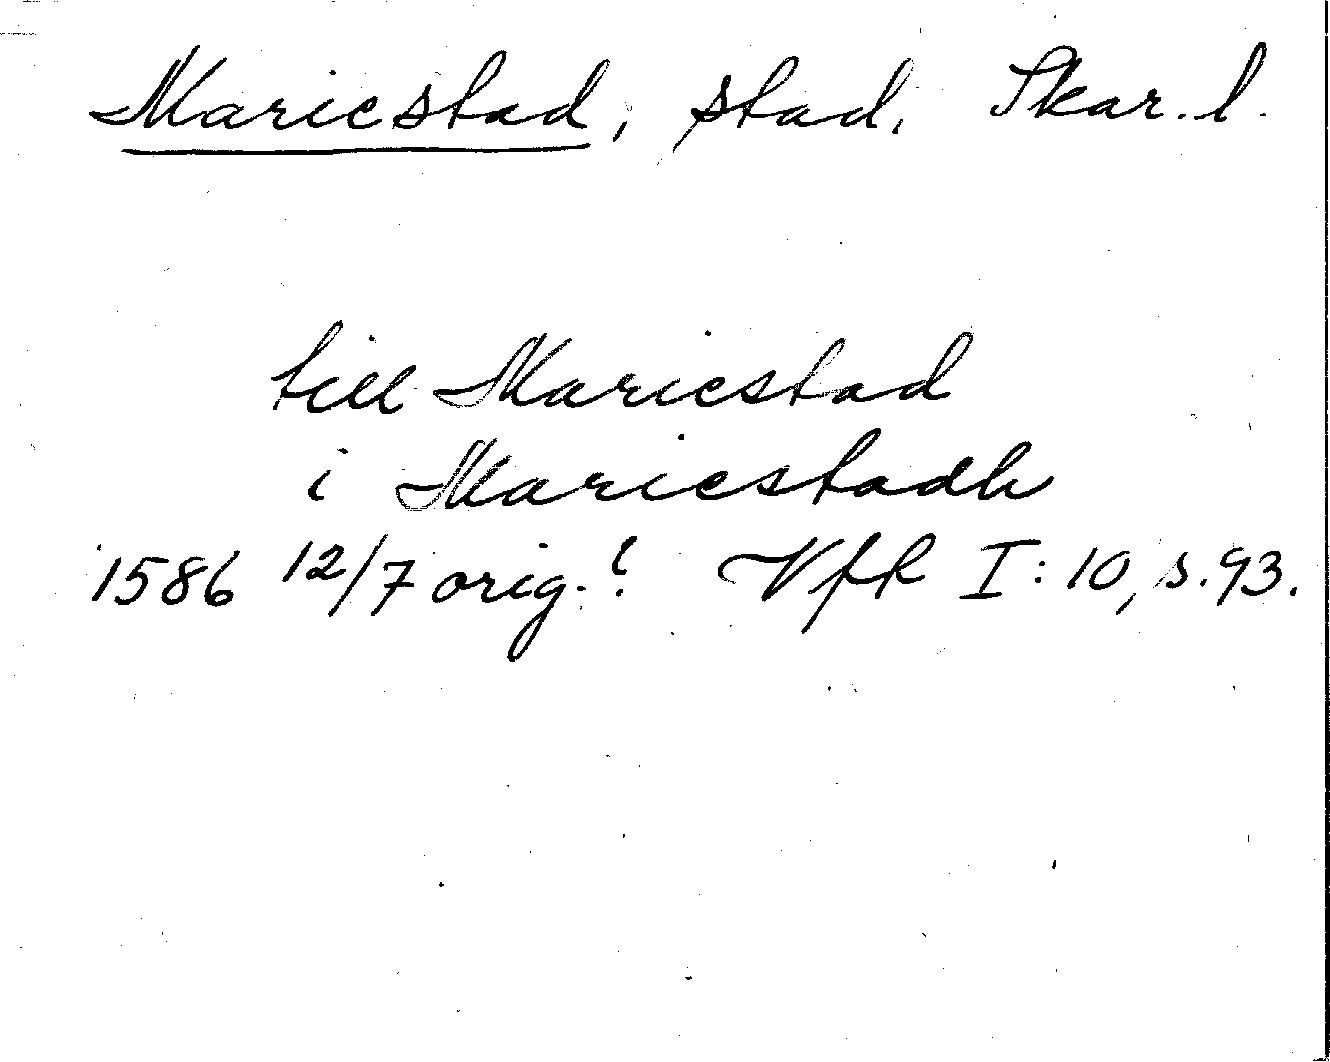 Mariestad, stad, Skar. l.
till Mariestad
i Mariestadh
1586 12/7 orig.? Vfk I:10, s. 93.